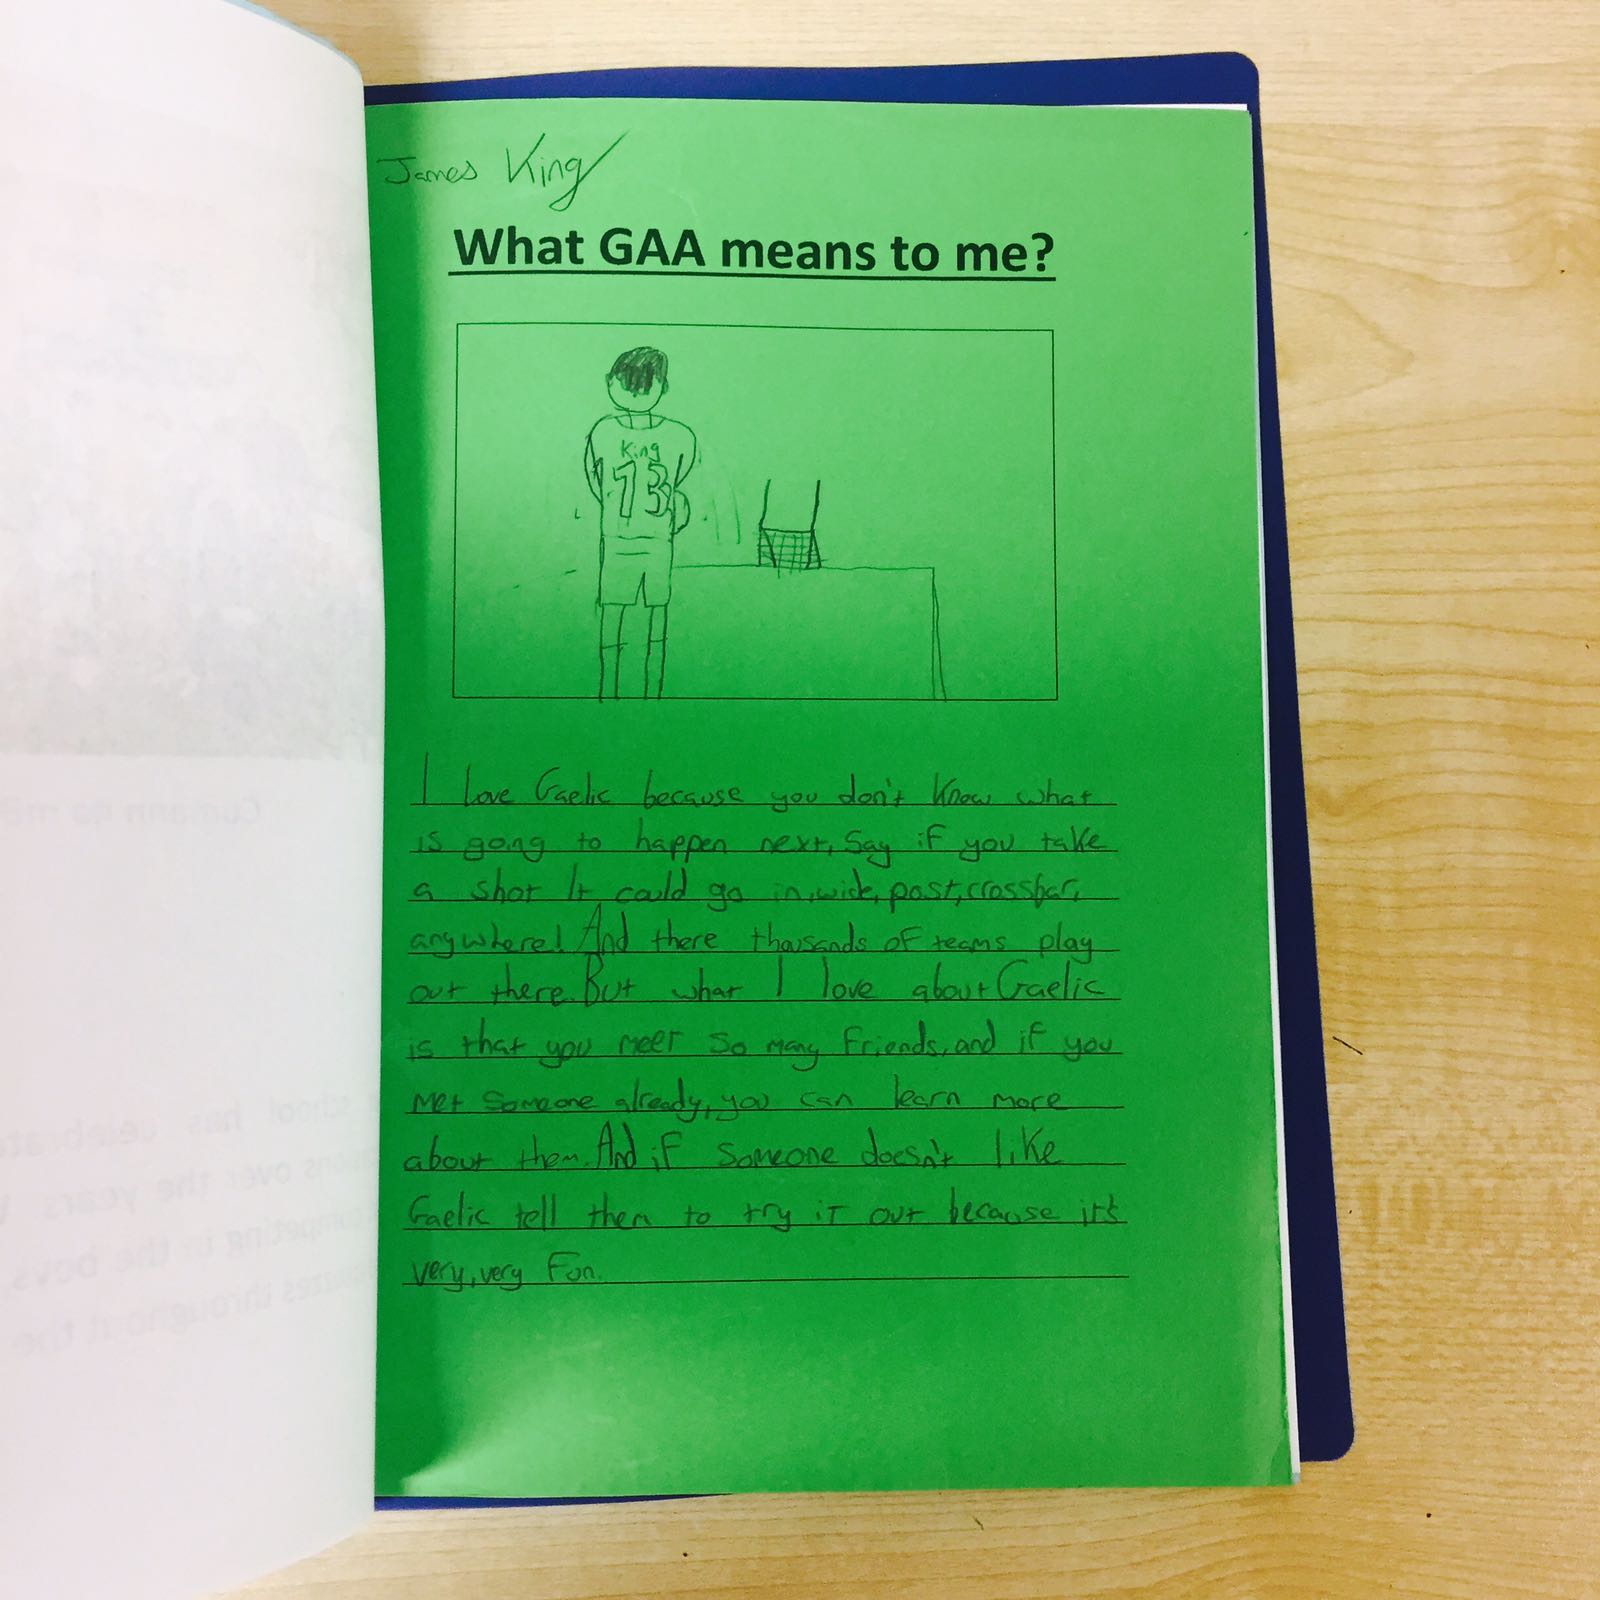 James King
What GAA means to me?
King
13
I love Gaelic because you don't know what
is going to happen next, Say if you take
a shot It could go in, wide, post, crossbar,
anywhere! And there thousands of teams play
out there. But what I love about Gaelic
is that you meet so many friends, and if you
met someone already, you can learn more
about them. And if someone doesn't like
Gaelic tell them to try it out because it's
very, very fun.